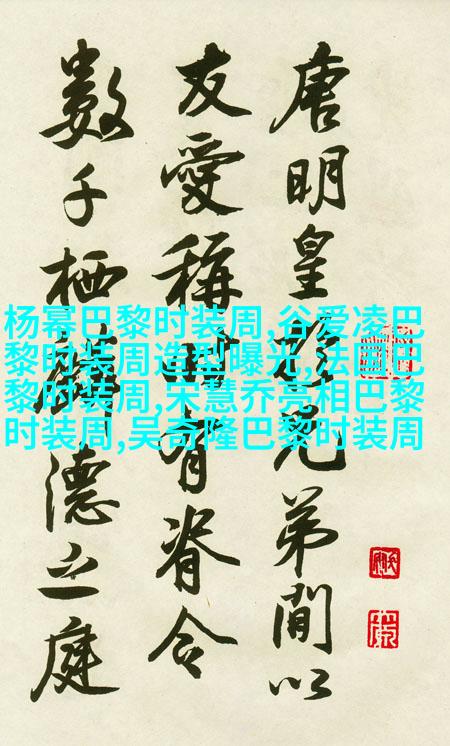 唐明皇於兄弟間以
友愛稱時有脊令
數千栖麟德之庭
杨幂巴黎时装周,谷爱凌巴
黎时装周造型曝光,法国巴
黎时装周,宋慧乔亮相巴黎
时装周,吴奇隆巴黎时装周